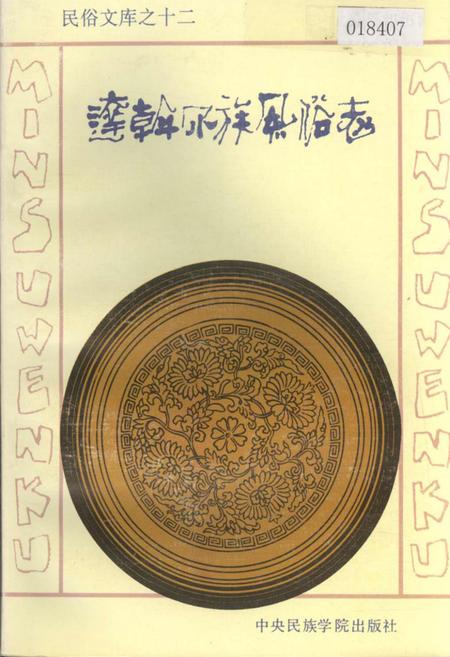 民俗文库之十二
018407
達斡尔族风俗志
MINSUWENKU
MINSUWENKU
中央民族学院出版社